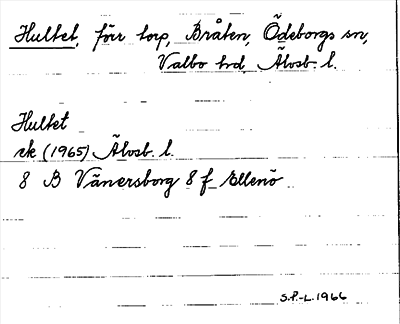 Hultet, förr torp, Bråten, Ödeborgs sn,
Valbo hd, Älvsb. l.
Hultet
ek (1965) Älvsb. l.
8 B Vänersborg 8 f Ellenö
S.P.-L. 1966